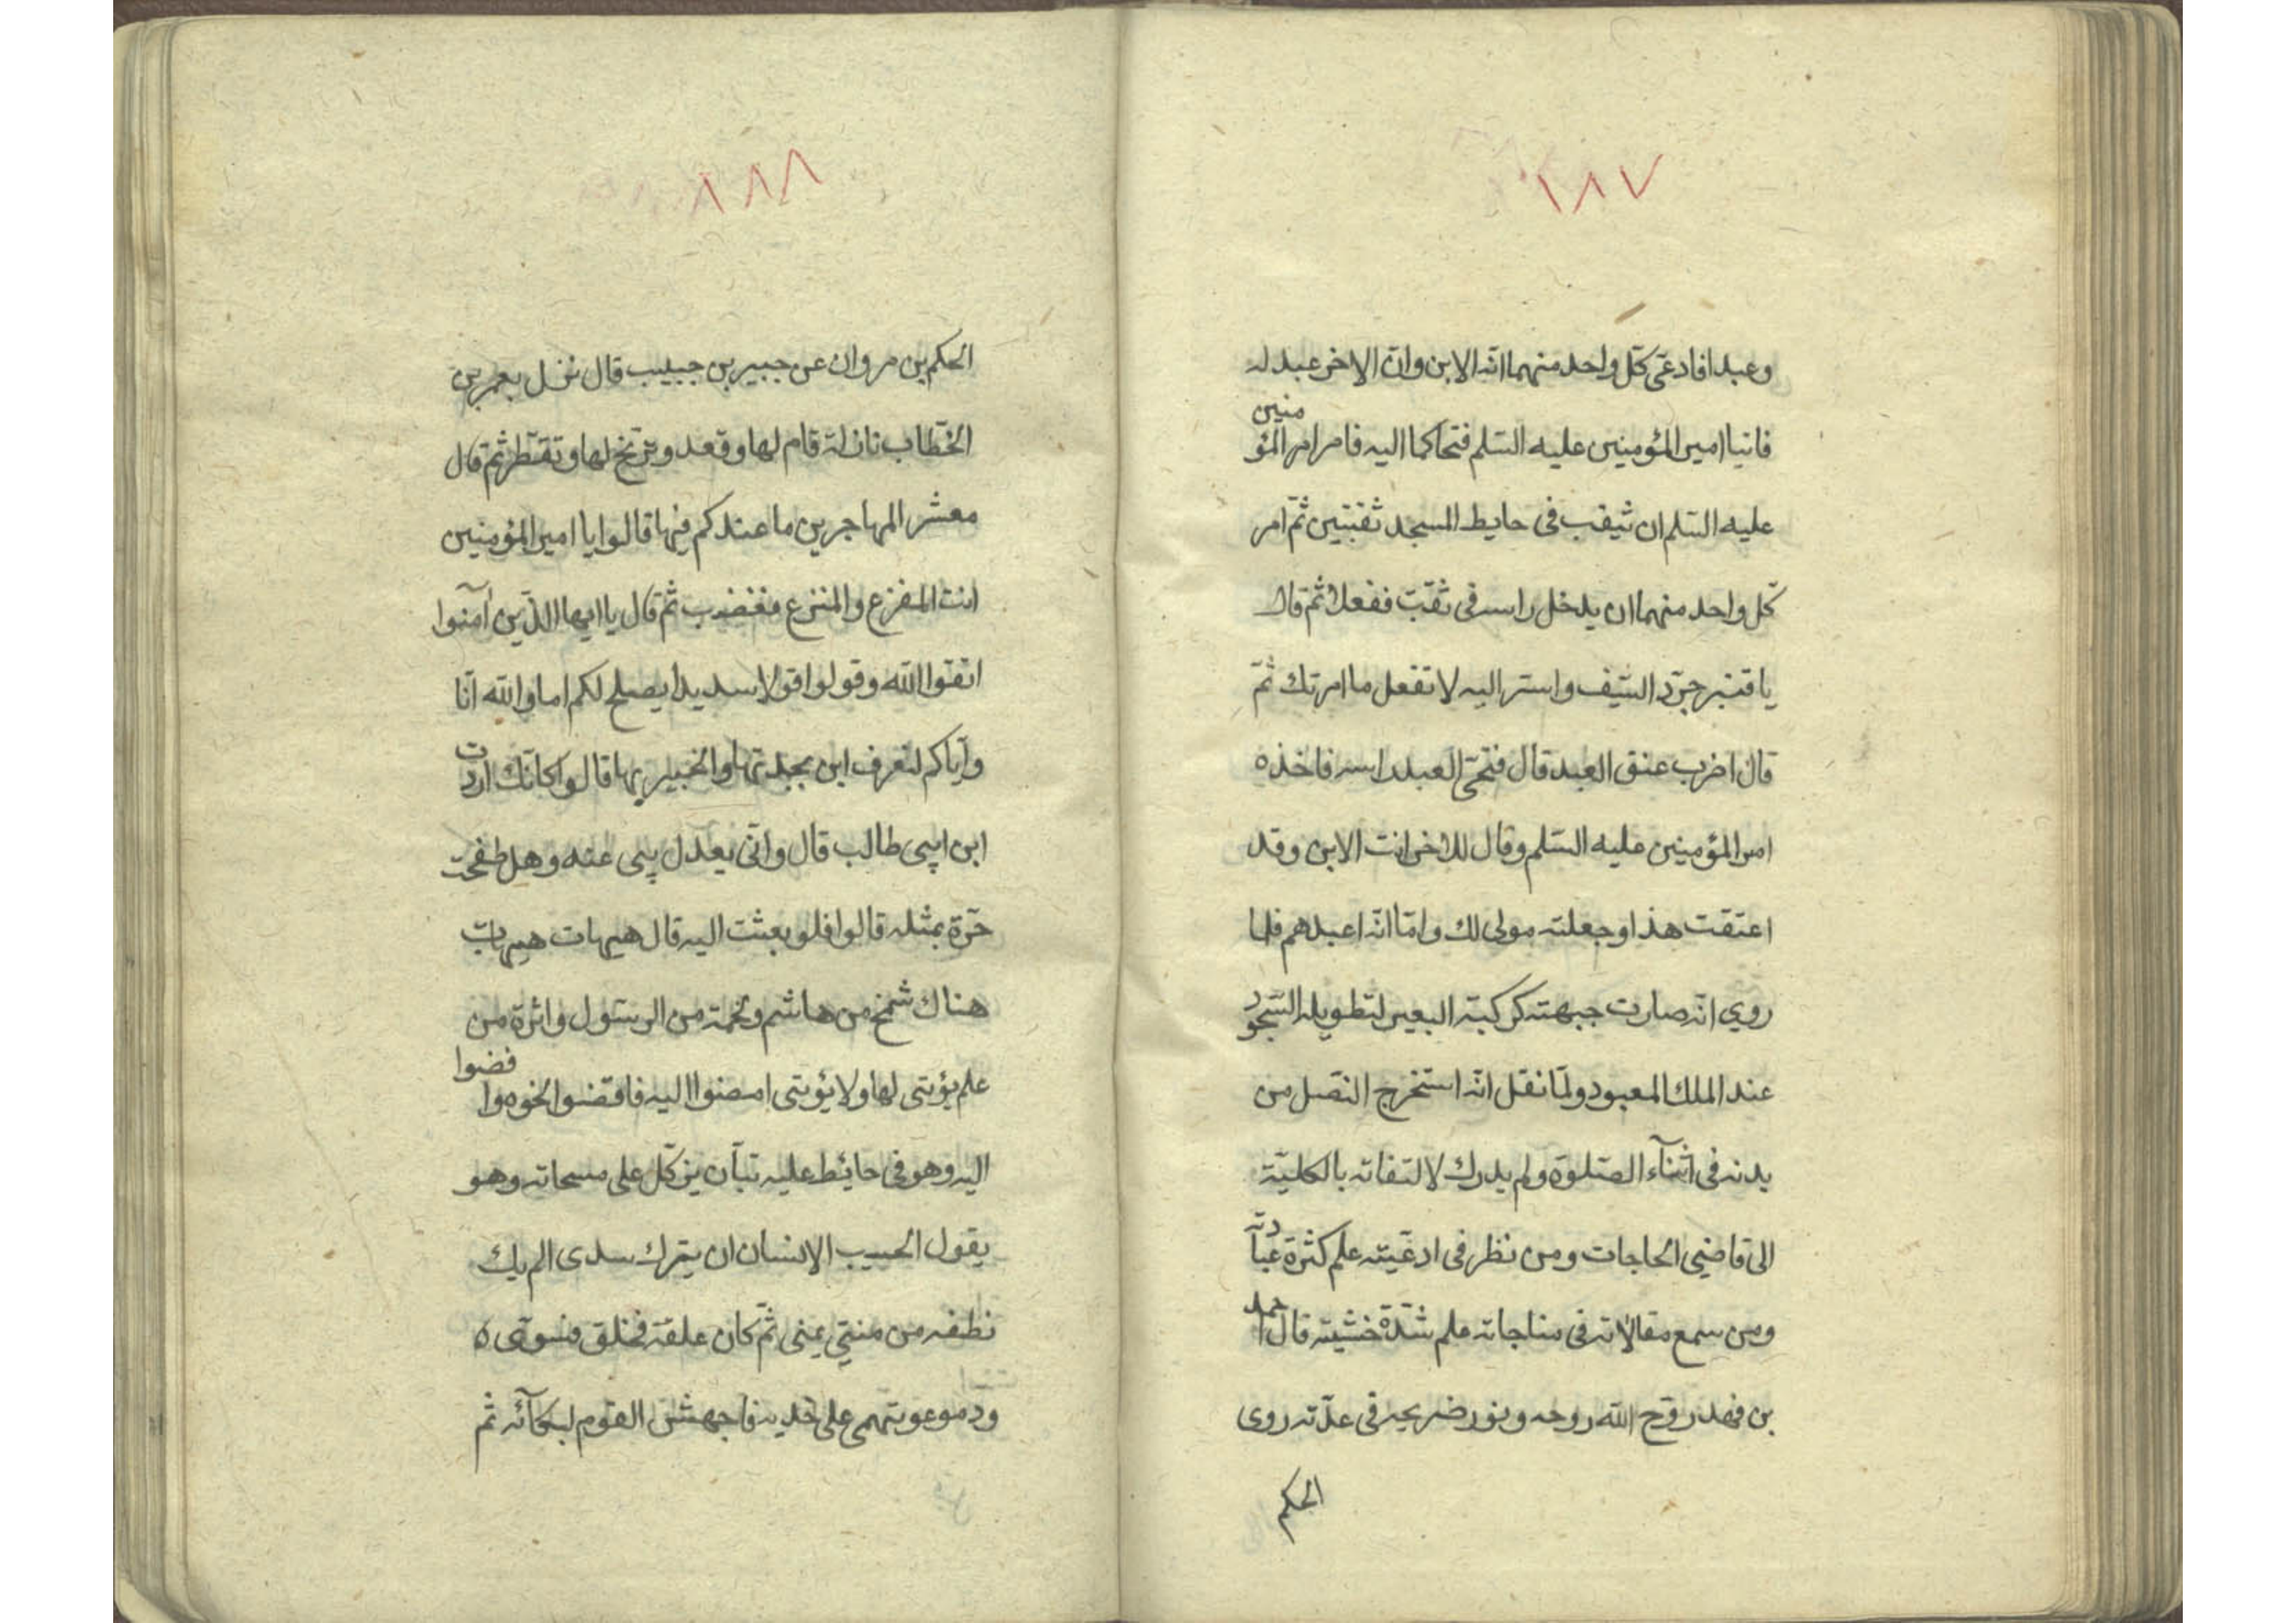 ١٨٧
وعبدا فادعّى كلّ واحد منهما انّه الابن وانّ الاخر عبد له
فاتيا امير المؤمنين عليه السّلم فتحاكما اليه فامر امر المؤمنين
عليه السّلم ان ثيقب فى حايط المسجد ثقبتين ثمّ امر
كلّ واحد منهما ان يدخل راسه فى ثقبّ ففعلا ثمّ قال
يا قنبر جرّد السّيف واستر اليه لا تفعل ما امرتك ثمّ
قال اضرب عنق العبد قال فنحّى العبد راسه فاخذه
امير المؤمنين عليه السّلم وقال للاخر انت الابن وقد
اعتقت هذا وجعلته مولى لك وامّا انّه اعبدهم فلما
روي انّه صارت جبهته كركبة البعير لتطويله السّجود
عند الملك المعبود ولمّا نقل انّه استخرج النّصل من
بدنه فى اثنآء الصّلوة ولم يدرك لالتفاته بالكليّة
الى قاضي الحاجات ومن نظر فى ادعّيته علم كثرة عبادته
ومن سمع مقالاته فى مناجاته علم شدّة خشيته قال احمد
بن فهد روّح الله روحه ونور ضريحه فى عدّته روى
الحكم
١٨٨
الحكم بن مروان عن جبير بن حبيب قال نزل بعمر بن
الخطّاب نازلة قام لها وقعد وترنّخ لها وتقطّر ثمّ قال
معشر المهاجرين ما عندكم فيها قالوا يا امير المؤمنين
انت المفزع والمنزع فغضب ثمّ قال يا ايها الذّين آمنوا
اتقوا الله وقولوا قولا سديدا يصلح لكم اما والله انّا
وايّاكم لنعرف ابن بجدتها والخبير بها قالوا كانّك اردت
ابن ابى طالب قال وانّى يعدل بى عنه وهل طفحت
حرّة بمثله قالوا فلو بعثت اليه قال هيهات هيهات
هناك شمخ من هاشم ولحمة من الرسول واثرة من
علم يؤتى لها ولا يؤتى امضوا اليه فاقضوا نحوه وافضوا
اليه وهو فى حائط عليه تبّان يتركّل على مسحاته وهو
يقول ايحسب الانسان ان يترك سدى الم يك
نطفه من منىّ يمنى ثمّ كان علقة فخلق فسوّى ٥
ودموعو تهمى على خديه فاجهش القوم لبكآئه ثم